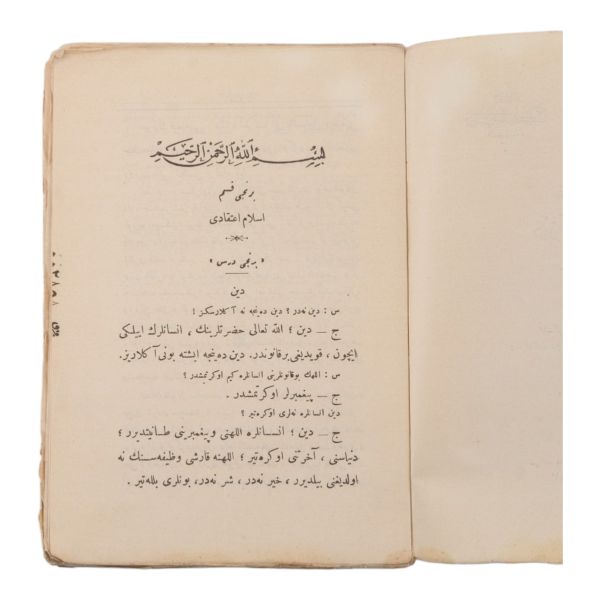 بسم الله الرحمن الرحيم
برنجی قسم
اسلام اعتقادی
« برنجی درس »
دین
س : دین نه‌در ؟ دین ده‌ینجه نه آ کلارسکز ؟
ج — دین ؛ الله تعالی حضرتلرینك ، انسانلرك ایيلكی
ایچون ، قویدیغی برقانوندر. دین ده‌ینجه ایشته بونی آ کلاریز.
س : اللهك بوقانونلرینی انسانلره كیم اوكرتمشدر ؟
ج — پیغمبرلر اوكرتمشدر .
دین انسانلره نه‌لری اوكره‌تیر ؟
ج — دین ؛ انسانلره اللهنی وپیغمبرینی طانیتدیرر ؛
دنیاسنی ، آخرتنی اوكره‌تیر ؛ اللهنه قارشی وظیفه‌سنك نه
اولدیغنی بیلدیرر ، خیر نه‌در ، شر نه‌در، بونلری بللەتیر .